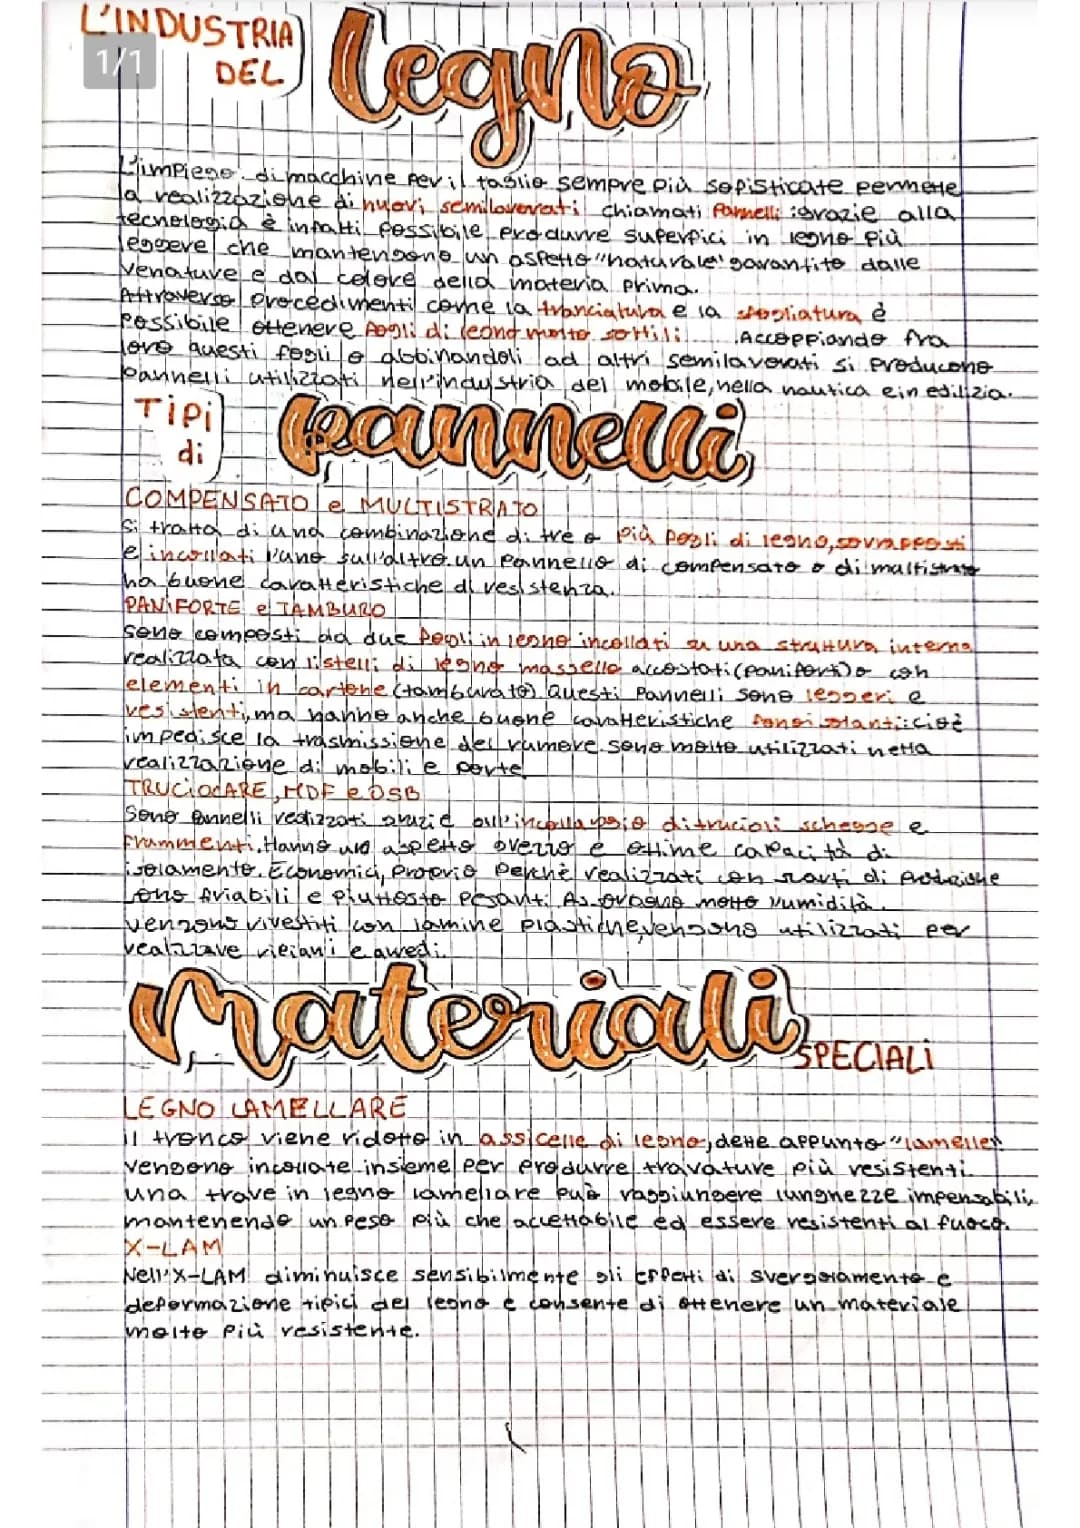 L'INDUSTRIA
DEL
legno
1/1
L'impiego di macchine per il taglio sempre più sofisticate permette
la realizzazione di nuovi semilavorati chiamati Pannelli :grazie alla
tecnologia è infatti possibile produrre superfici in legno più
leggere che mantengono un aspetto "naturale" garantito dalle
venature e dal colore della materia prima.
Attraverso procedimenti come la tranciatura e la sfogliatura è
possibile ottenere fogli di legno molto sottili. Accoppiando fra
loro questi fogli o abbinandoli ad altri semilavorati si producono
pannelli utilizzati nell'industria del mobile, nella nautica e in edilizia.
Tipi
di
pannelli
COMPENSATO e MULTISTRATO
Si tratta di una combinazione di tre o più fogli di legno, sovrapposti
e incollati l'uno sull'altro. un pannello di compensato o di multistrato
ha buone caratteristiche di resistenza.
PANIFORTE e TAMBURO
Sono composti da due fogli in legno incollati su una struttura interna
realizzata con listelli di legno massello accostati (paniforti) o con
elementi in cartone (tamburato). Questi Pannelli sono leggeri e
resistenti, ma hanno anche buone caratteristiche :cioè
impedisce la trasmissione del rumore. sono molto utilizzati nella
realizzazione di mobili e porte
TRUCIOLARE, MDF e OSB
Sono pannelli realizzati grazie all'incollaggio di trucioli schegge e
frammenti. Hanno un aspetto grezzo e ottime capacità di
isolamento. Economici, proprio perchè realizzati con scarti di produzione
sono friabili e piuttosto pesanti. Assorbono molto l'umidità.
vengono rivestiti con lamine plastiche, vengono utilizzati per
realizzare ripiani e arredi.
Materiali
SPECIALI
LEGNO LAMELLARE
il tronco viene ridotto in assicelle di legno, dette appunto "lamelle".
vengono incollate insieme per produrre travature più resistenti.
una trave in legno lamellare può raggiungere lunghezze impensabili,
mantenendo un peso più che accettabile ed essere resistenti al fuoco.
X-LAM
Nell'X-LAM diminuisce sensibilmente gli effetti di svergolamento e
deformazione tipici del legno e consente di ottenere un materiale
molto più resistente.